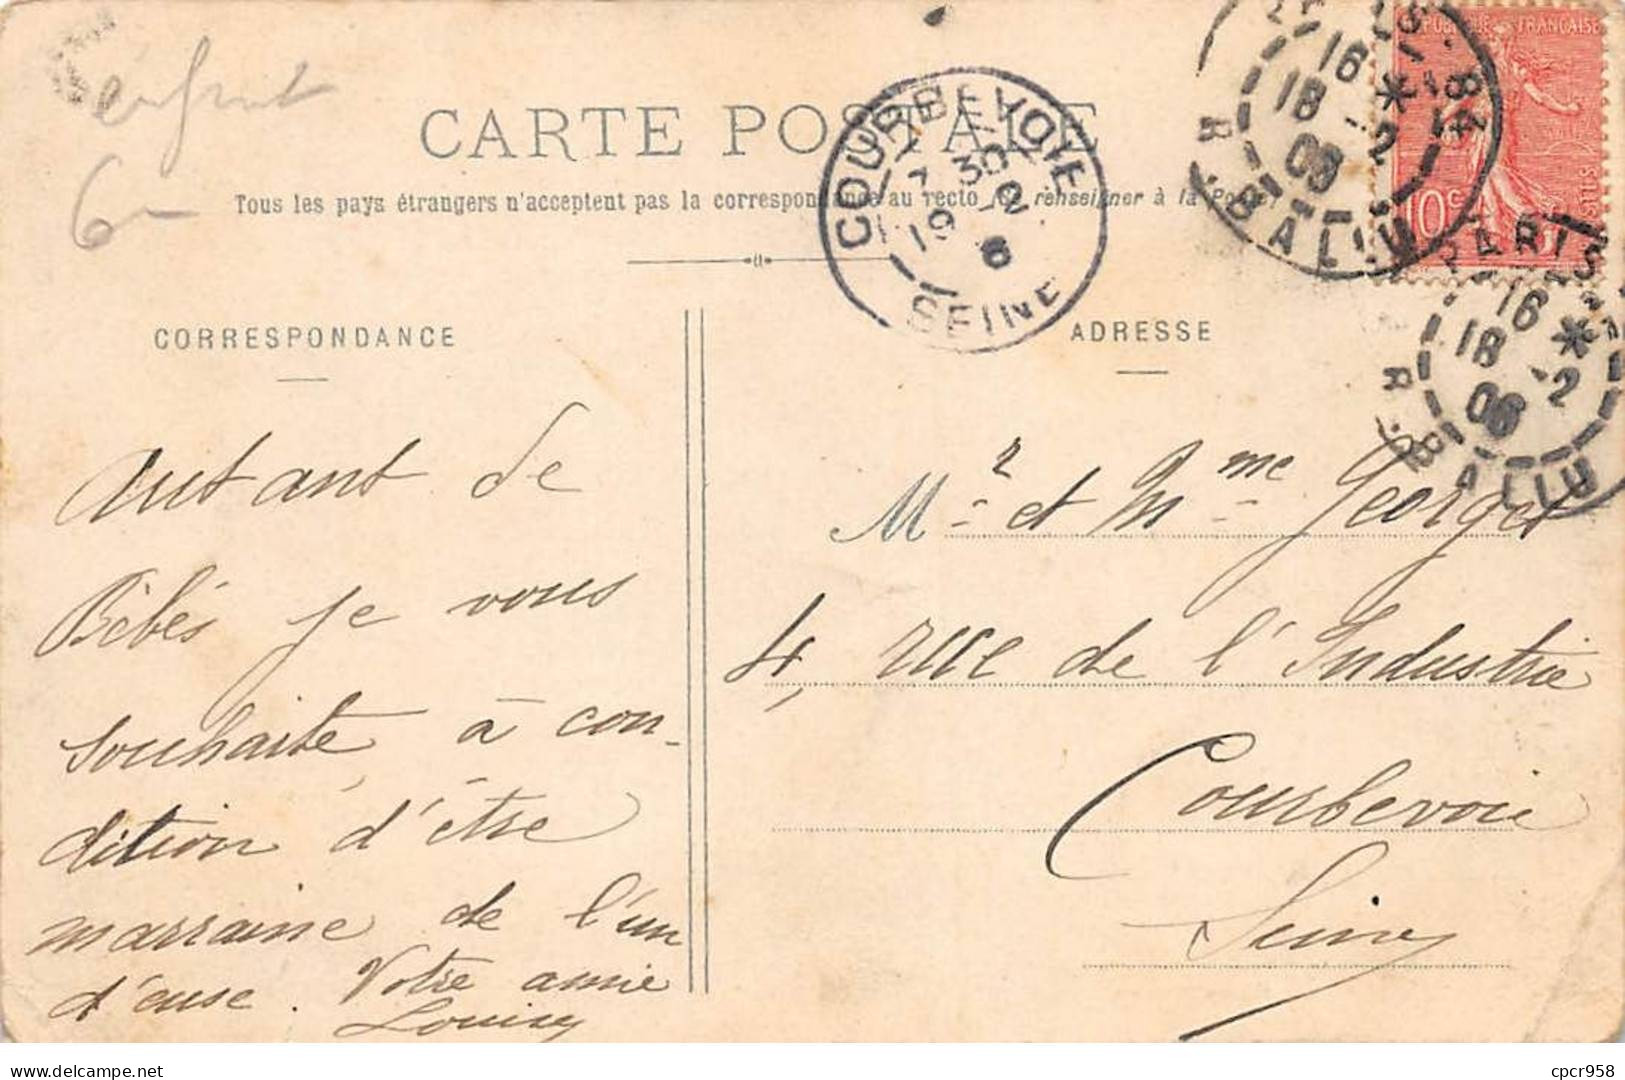 enfant
6
CARTE POSTALE
Tous les pays étrangers n'acceptent pas la correspondance au recto (Se renseigner à la Poste)
COURBEVOIE
7 30
19 - 2
6
SEINE
PARIS - 84
16 *
18 - 2
06
R. BALLU
RÉPUBLIQUE FRANÇAISE
10c
POSTES
PARIS
16 *
18 - 2
06
R. BALLU
CORRESPONDANCE
Autant de
Bébés je vous
souhaite à con-
dition d'être
marraine de l'un
d'euse. Votre amie
Louise
ADRESSE
Mr et Mme Georget
4, rue de l'Industrie
Courbevoie
Seine
cpcr958